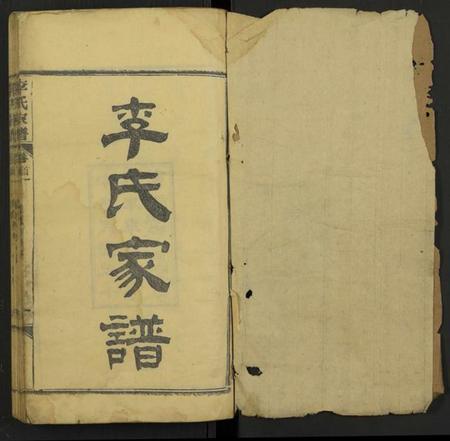 李氏家譜
李氏家譜